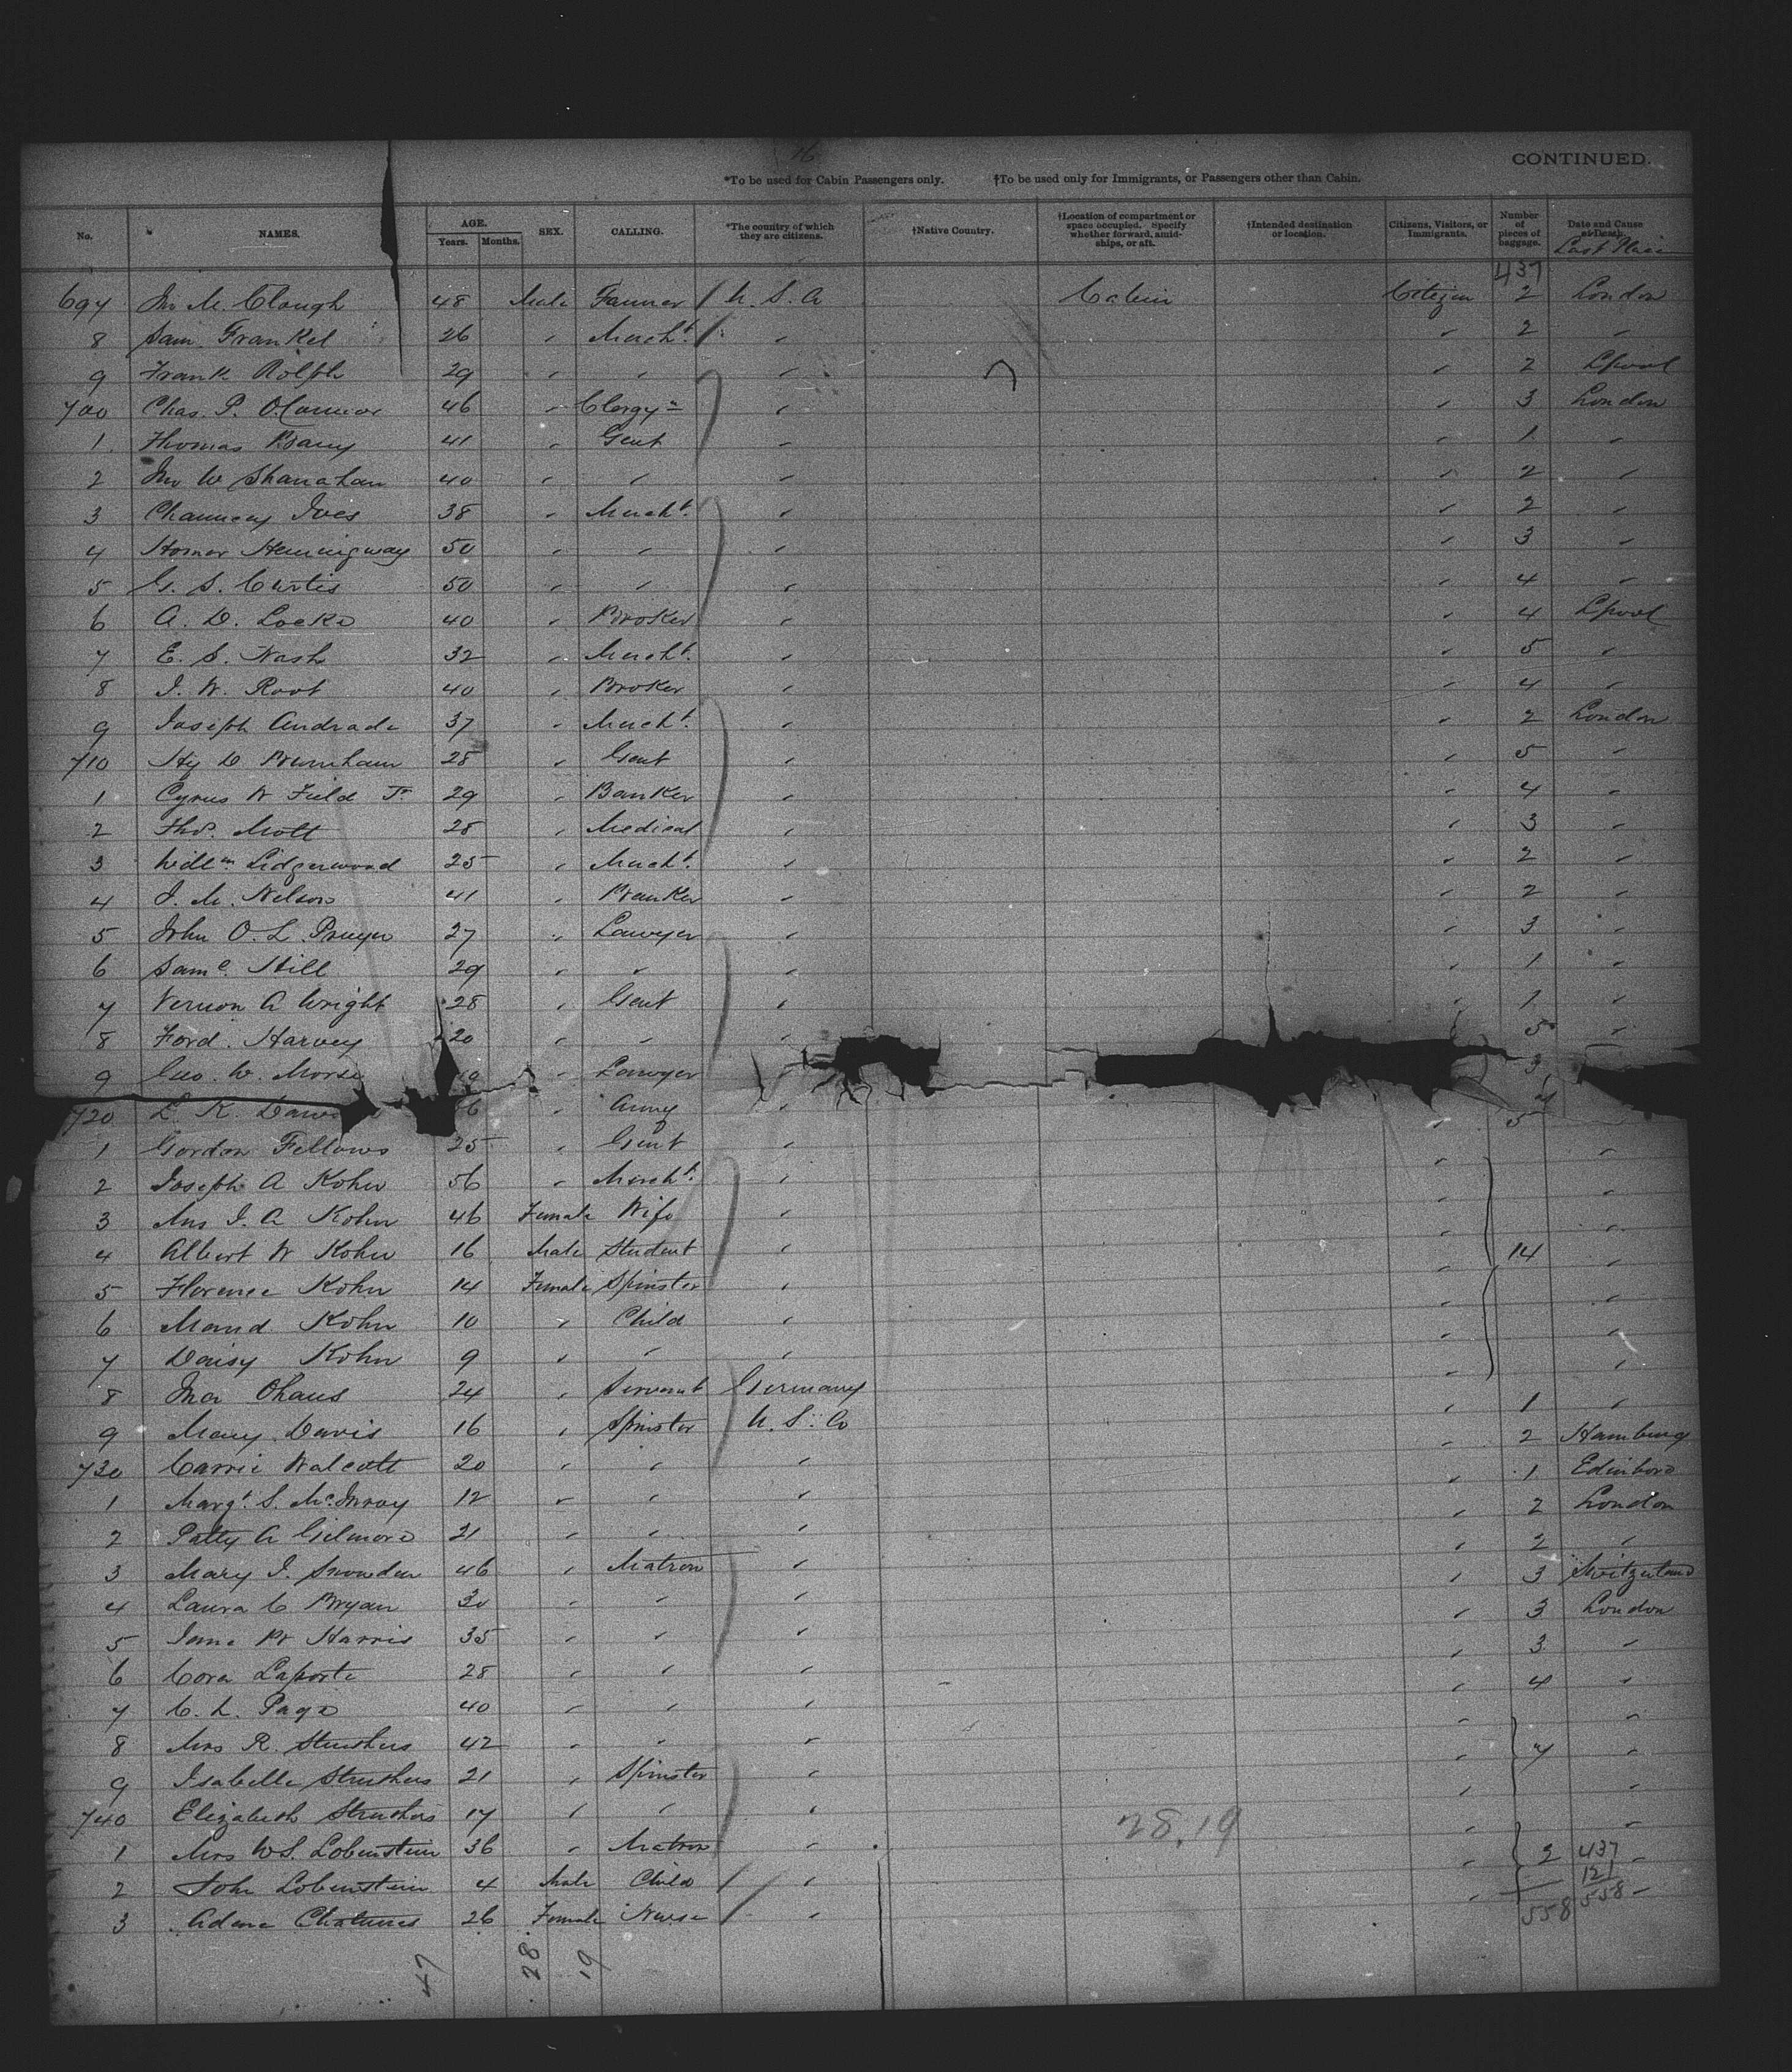 16
CONTINUED.
*To be used for Cabin Passengers only. †To be used only for Immigrants, or Passengers other than Cabin.
No. NAMES. AGE. Years. Months. SEX. CALLING. *The country of which they are citizens. †Native Country. †Location of compartment or space occupied. Specify whether forward, amidships, or aft. †Intended destination or location. Citizens, Visitors, or Immigrants. Number of pieces of baggage. Date and Cause of Death. Last Place
437
697 Jno M. Clough 48 Male Farmer U. S. A Cabin Citizen 2 London
8 Sam. Frankel 26 " Mercht. " " 2 "
9 Frank Rolph 29 " " " " 2 Lpool
700 Chas. P. O'Connor 46 " Clergyn " " 3 London
1 Thomas Barry 41 " Gent " " 1 "
2 Jno W Shanahan 40 " " " " 2 "
3 Chauncey Ives 38 " Mercht. " " 2 "
4 Homer Hemingway 50 " " " " 3 "
5 G. S. Curtis 50 " " " " 4 "
6 A. D. Locke 40 " Broker " " 4 Lpool
7 E. S. Nash 32 " Mercht. " " 5 "
8 I. W. Root 40 " Broker " " 4 "
9 Joseph Andrade 37 " Mercht. " " 2 London
710 Hy D Burnham 28 " Gent " " 5 "
1 Cyrus W Field Jr 29 " Banker " " 4 "
2 Thos. Mott 28 " Medical " " 3 "
3 Willm Lidgerwood 25 " Mercht. " " 2 "
4 J. M. Nelson 41 " Banker " " 2 "
5 John O. L. Pruyn 27 " Lawyer " " 3 "
6 Saml. Hill 29 " " " " 1 "
7 Vernon A Wright 28 " Gent " " 1 "
8 Ford. Harvey 20 " " " 5 "
9 Geo. W. Morse " Lawyer 3
720 L. K. " Army " " 5
1 Gordon Fellows 25 " Gent " " "
2 Joseph A Kohn 56 " Mercht. " " "
3 Mrs J. A Kohn 46 Female Wife " " "
4 Albert W Kohn 16 Male Student " " 14 "
5 Florence Kohn 14 Female Spinster " " "
6 Maud Kohn 10 " Child " " "
7 Daisy Kohn 9 " " " " "
8 Ohaus 24 " Servant Germany " 1 "
9 Mary Davis 16 " Spinster U. S. Co " 2 Hamburg
730 Carrie Walcott 20 " " " " 1 Edinboro
1 Margt. S. McInroy 12 " " " " 2 London
2 Patty A Gilmore 21 " " " " 2 "
3 Mary J. Snowden 46 " Matron " " 3 Switzerland
4 Laura C Bryan 30 " " " " 3 London
5 Jane W Harris 35 " " " " 3 "
6 Cora Laporte 28 " " " " 4 "
7 C. L. Page 40 " " " " "
8 Mrs R. Struthers 42 " " " " 7 "
9 Isabelle Struthers 21 " Spinster " " "
740 Elizabeth Struthers 17 " " " " "
1 Mrs W S. Lobenstein 36 " Matron " " 2 "
2 John Lobenstein 4 Male Child " "
3 Adene 26 Female Nurse " "
28.19
437
121
558
558
47 28. 19